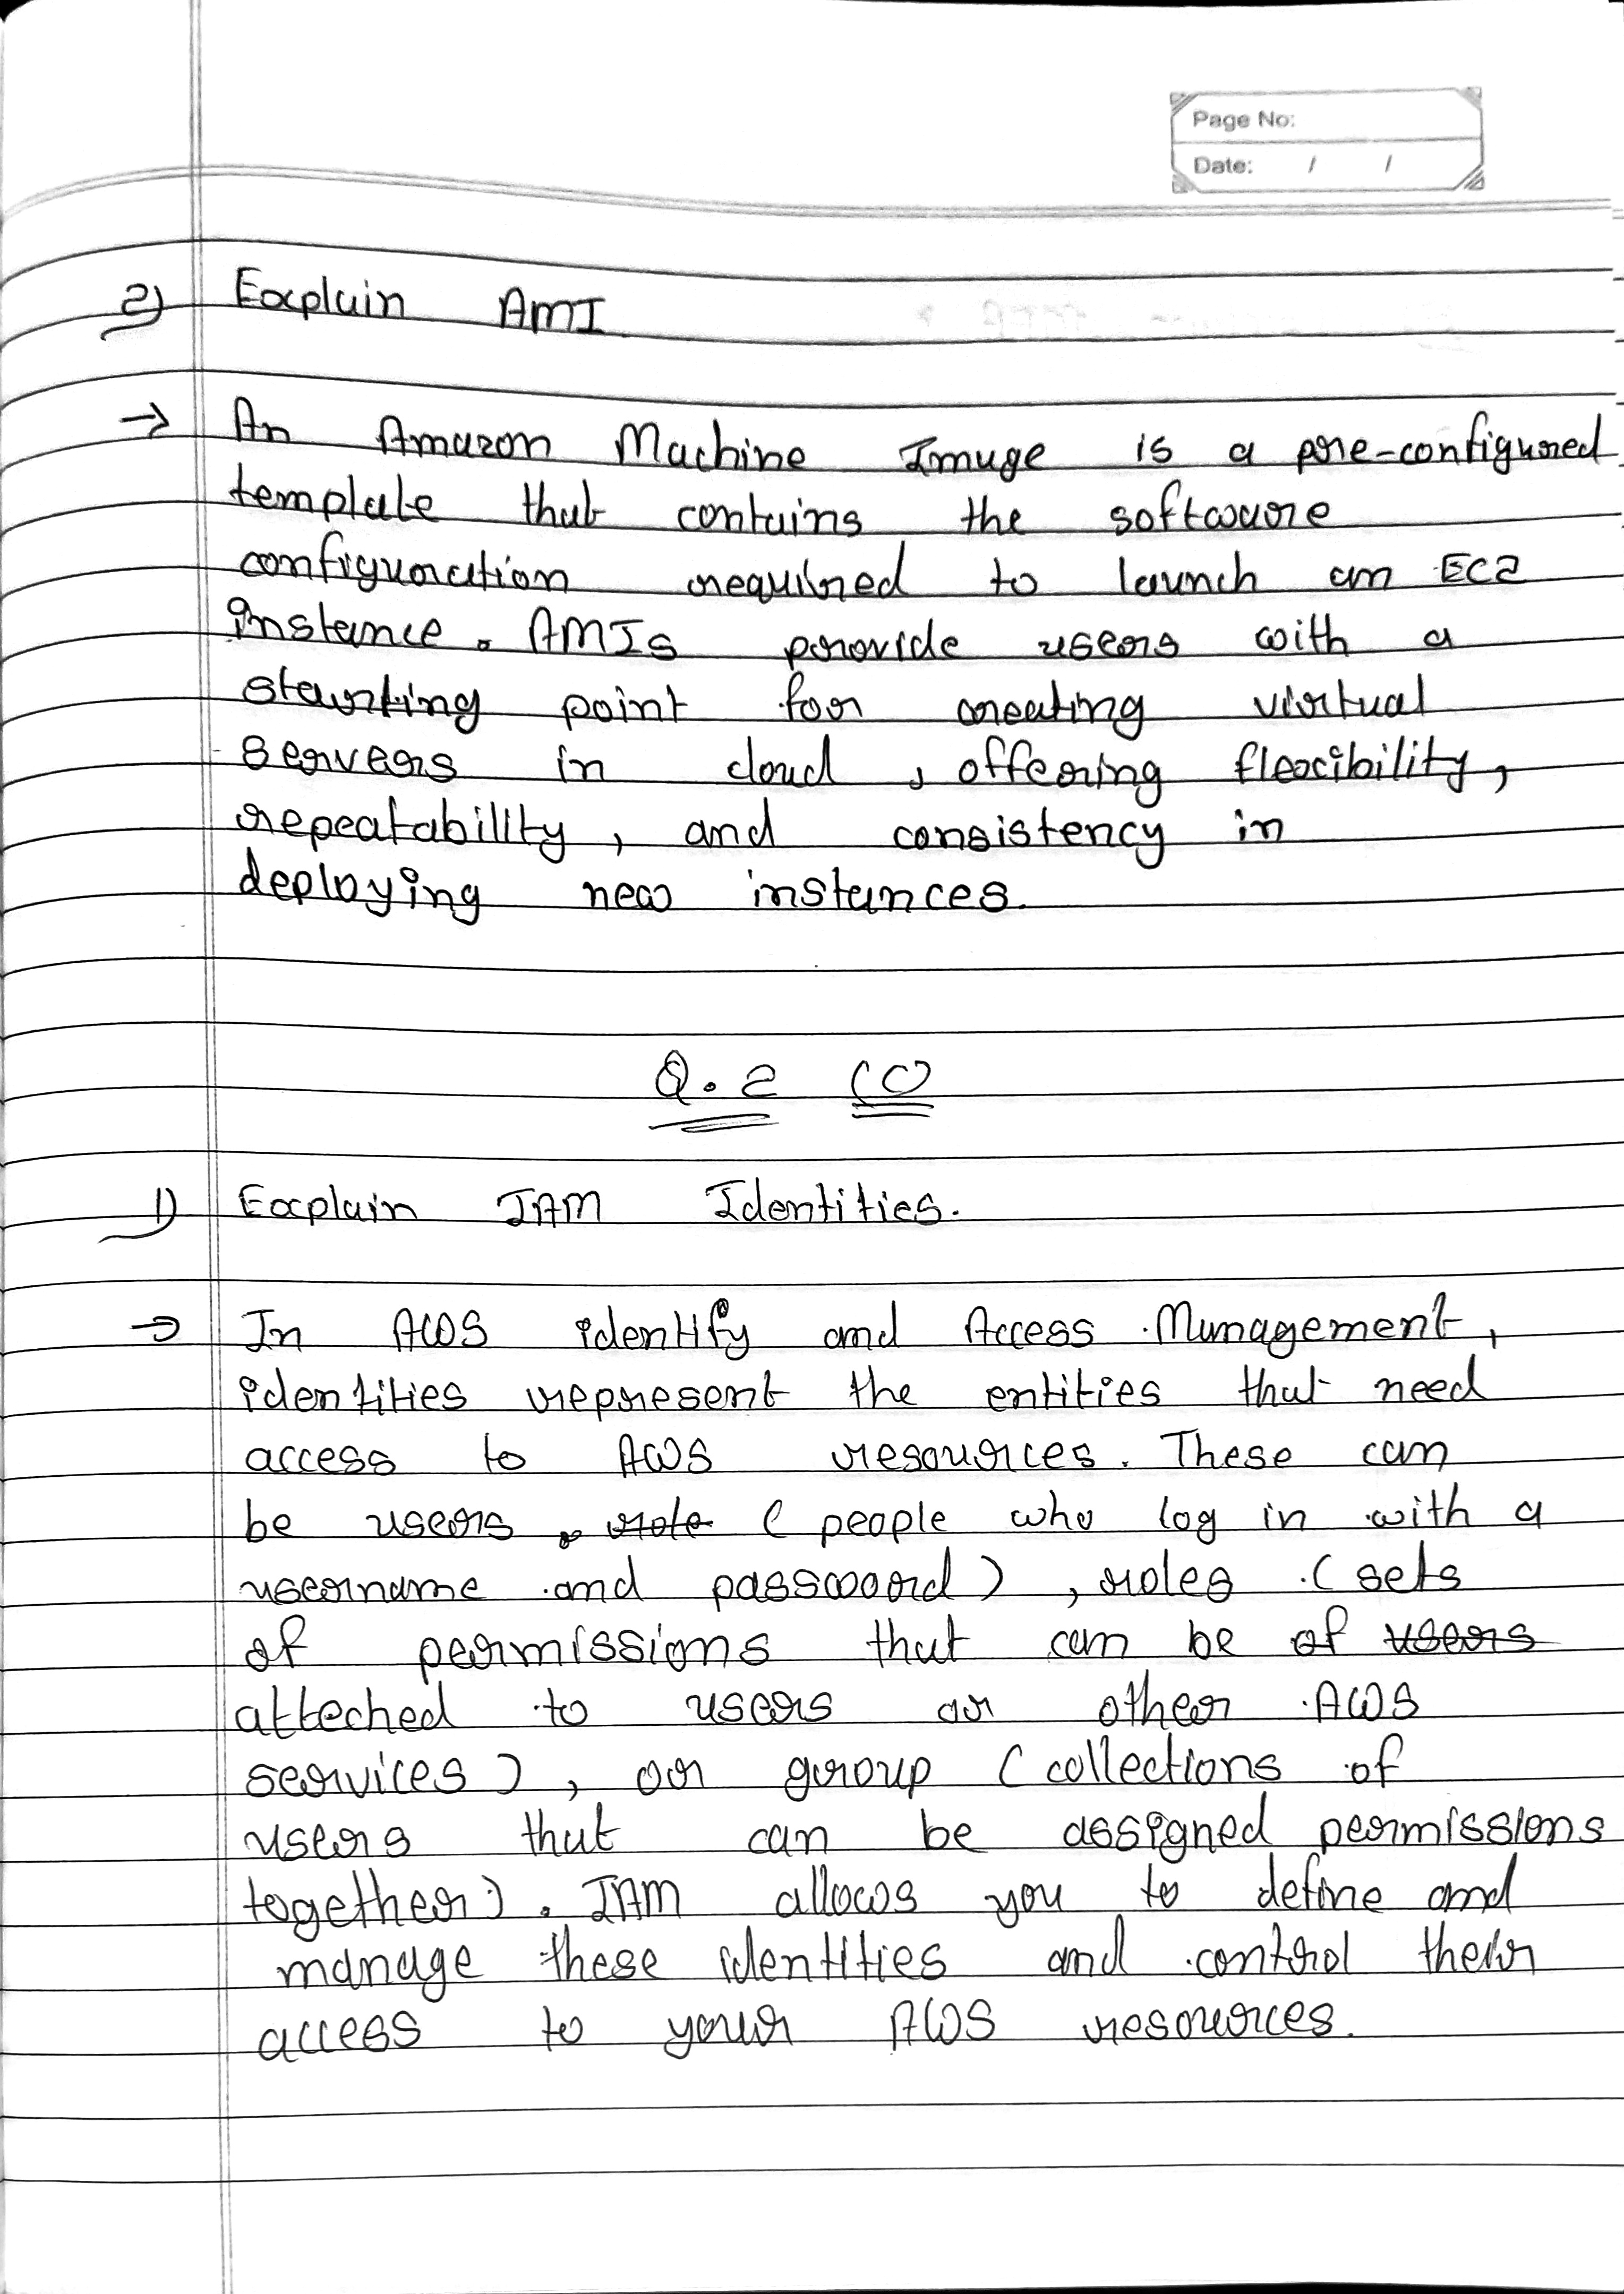 Page No:
Date: / /
2) Explain AMI
→ An Amazon Machine Image is a pre-configured
template that contains the software
configuration required to launch an EC2
instance. AMIs provide users with a
starting point for creating virtual
servers in cloud, offering flexibility,
repeatability, and consistency in
deploying new instances.
Q.2 (C)
1) Explain IAM Identities.
→ In AWS identify and Access Management,
identities represent the entities that need
access to AWS resources. These can
be users, role ( people who log in with a
username and password), roles (sets
of permissions that can be of users
atteched to users or other AWS
services), or group (collections of
users that can be assigned permissions
together). IAM allows you to define and
manage these identities and control their
access to your AWS resources.